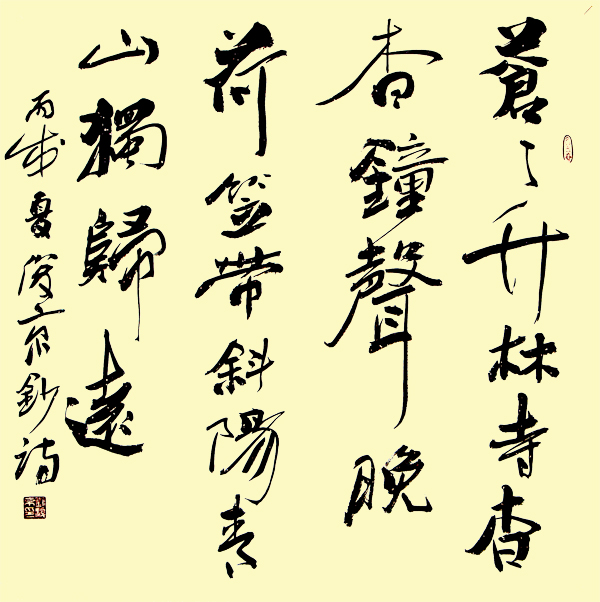 蒼〻竹林寺杳
杳鐘聲晚
荷笠帶斜陽青
山獨歸遠
丙戌夏俊京鈔詩